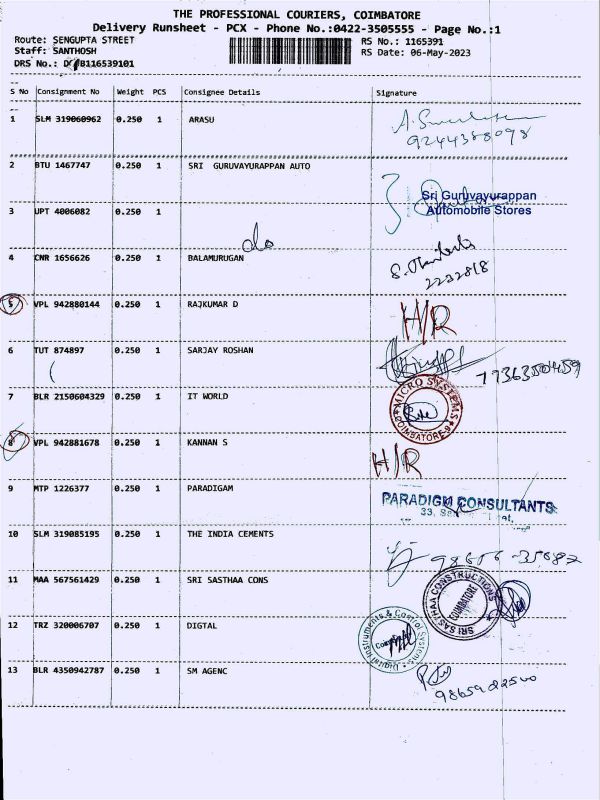 THE PROFESSIONAL COURIERS, COIMBATORE
Delivery Runsheet - PCX - Phone No.:0422-3505555 - Page No.:1
Route: SENGUPTA STREET
RS No.: 1165391
Staff: SANTHOSH
RS Date: 06-May-2023
DRS No.: B116539101
S No Consignment No Weight PCS Consignee Details Signature
1 SLM 319060962 0.250 1 ARASU
9244388098
2 BTU 1467747 0.250 1 SRI GURUVAYURAPPAN AUTO
Sri Guruvayurappan
Automobile Stores
3 UPT 4006082 0.250 1
do
4 CNR 1656626 0.250 1 BALAMURUGAN
2232818
5 VPL 942880144 0.250 1 RAJKUMAR D H/R
6 TUT 874897 0.250 1 SARJAY ROSHAN
7 BLR 2150604329 0.250 1 IT WORLD
MICRO SYSTEMS
COIMBATORE-9
8 VPL 942881678 0.250 1 KANNAN S H/R
9 MTP 1226377 0.250 1 PARADIGAM
PARADIGM CONSULTANTS
33,
10 SLM 319085195 0.250 1 THE INDIA CEMENTS
98656-35682
11 MAA 567561429 0.250 1 SRI SASTHAA CONS
SRI SASTHAA CONSTRUCTIONS
COIMBATORE
12 TRZ 320006707 0.250 1 DIGTAL
Digital Instruments & Control Systems
13 BLR 4350942787 0.250 1 SM AGENC
9865922500